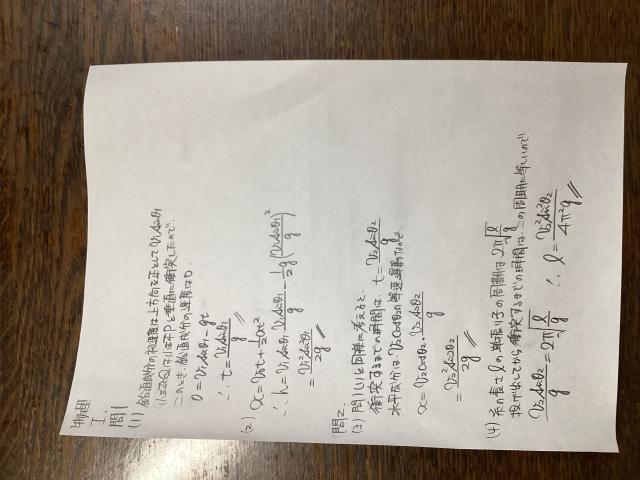 物理
I.
問1
(1) 鉛直成分の初速度は上方向を正として v₁sinθ₁
小球Qは小球Pと垂直に衝突したので、
このとき、鉛直成分の速度は0.
0 = v₁sinθ₁ - gt
∴ t = v₁sinθ₁/g
(2) x = v₀t + 1/2 at²
∴ h = v₁sinθ₁ · v₁sinθ₁/g - 1/2 g (v₁sinθ₁/g)²
= v₁²sin²θ₁/2g
問2.
(3) 問1(1)と同様に考えると、
衝突するまでの時間は、t = v₂sinθ₂/g
水平成分は、v₂cosθ₂の等速運動なので、
x = v₂cosθ₂ · v₂sinθ₂/g
= v₂²sin2θ₂/2g
(4) 糸の長さ l の単振り子の周期は 2π√(l/g)
投げ出してから衝突するまでの時間は、この周期に等しいので、
v₂sinθ₂/g = 2π√(l/g) ∴ l = v₂²sin²θ₂/4π²g